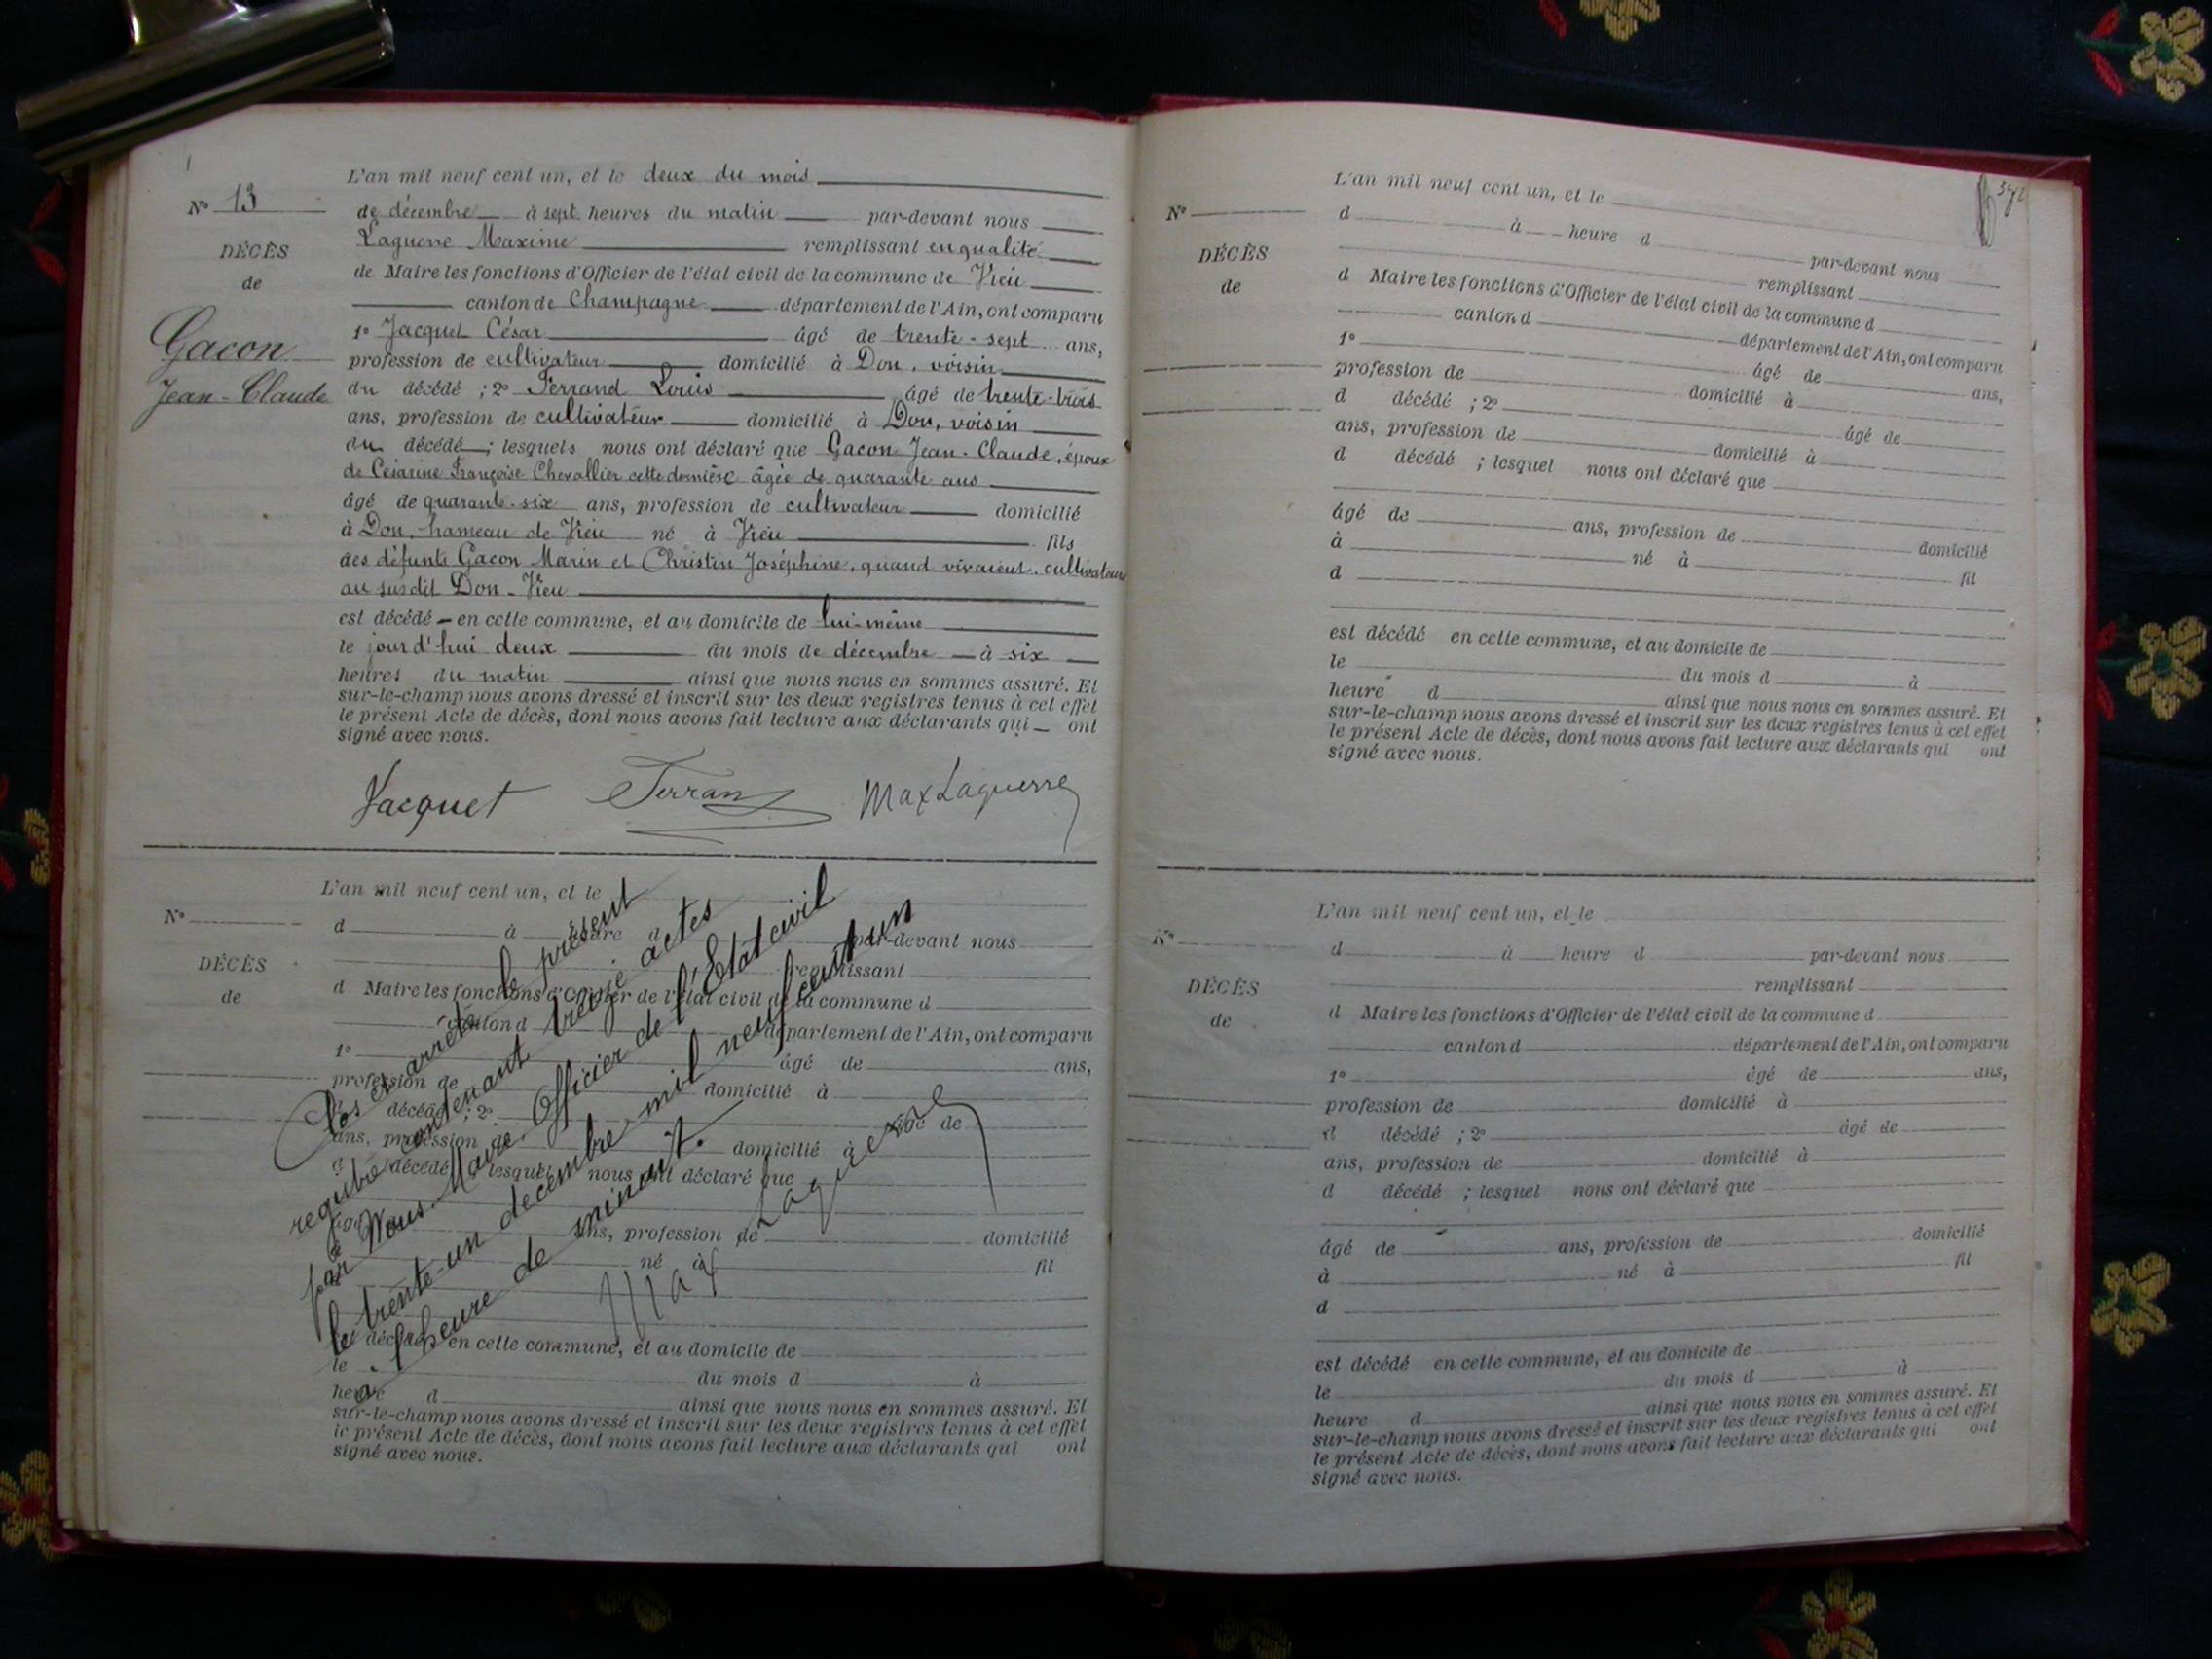 L'an mil neuf cent un, et le deux du mois
N° 13
de décembre à sept heures du matin par-devant nous
Laguerre Maxime remplissant en qualité
DÉCÈS
de
de Maire les fonctions d'Officier de l'état civil de la commune de Vieu
canton de Champagne département de l'Ain, ont comparu
1° Jacquet César âgé de trente-sept ans,
Gacon
Jean-Claude
profession de cultivateur domicilié à Don, voisin
du décédé ; 2° Ferrand Louis âgé de trente-trois
ans, profession de cultivateur domicilié à Don, voisin
du décédé ; lesquels nous ont déclaré que Gacon Jean-Claude, époux
de Césarine Françoise Chevallier cette dernière âgée de quarante ans
âgé de quarante-six ans, profession de cultivateur domicilié
à Don, hameau de Vieu né à Vieu fils
des défunts Gacon Marin et Christin Joséphine, quand vivaient cultivateurs
au susdit Don-Vieu
est décédé en cette commune, et au domicile de lui-même
le jourd'hui deux du mois de décembre à six
heures du matin ainsi que nous nous en sommes assuré. Et
sur-le-champ nous avons dressé et inscrit sur les deux registres tenus à cet effet
le présent Acte de décès, dont nous avons fait lecture aux déclarants qui ont
signé avec nous.
Jacquet Ferrand Max Laguerre
L'an mil neuf cent un, et le
N°
d à heure d par-devant nous
remplissant
DÉCÈS
de
d Maire les fonctions d'Officier de l'état civil de la commune d
canton d département de l'Ain, ont comparu
1° âgé de ans,
profession de domicilié à
décédé ; 2° âgé de
ans, profession domicilié à
décédé lesquel nous ont déclaré que
ans, profession de domicilié
né à fil
décédé en cette commune, et au domicile de
le du mois d à
heure d ainsi que nous nous en sommes assuré. Et
sur-le-champ nous avons dressé et inscrit sur les deux registres tenus à cet effet
le présent Acte de décès, dont nous avons fait lecture aux déclarants qui ont
signé avec nous.
Clos et arrêté le présent
registre contenant treize actes
par Nous Maire Officier de l'Etat civil
le trente-un décembre mil neuf cent un
à l'heure de minuit.
Max Laguerre
372
L'an mil neuf cent un, et le
N°
d à heure d
par-devant nous
DÉCÈS
de
remplissant
d Maire les fonctions d'Officier de l'état civil de la commune d
canton d département de l'Ain, ont comparu
1° âgé de ans,
profession de domicilié à
d décédé ; 2° âgé de
ans, profession de domicilié à
d décédé ; lesquel nous ont déclaré que
âgé de ans, profession de domicilié
à né à fil
d
est décédé en cette commune, et au domicile de
le du mois d à
heure d ainsi que nous nous en sommes assuré. Et
sur-le-champ nous avons dressé et inscrit sur les deux registres tenus à cet effet
le présent Acte de décès, dont nous avons fait lecture aux déclarants qui ont
signé avec nous.
L'an mil neuf cent un, et le
N°
d à heure d par-devant nous
remplissant
DÉCÈS
de
d Maire les fonctions d'Officier de l'état civil de la commune d
canton d département de l'Ain, ont comparu
1° âgé de ans,
profession de domicilié à
d décédé ; 2° âgé de
ans, profession de domicilié à
d décédé ; lesquel nous ont déclaré que
âgé de ans, profession de domicilié
à né à fil
d
est décédé en cette commune, et au domicile de
le du mois d à
heure d ainsi que nous nous en sommes assuré. Et
sur-le-champ nous avons dressé et inscrit sur les deux registres tenus à cet effet
le présent Acte de décès, dont nous avons fait lecture aux déclarants qui ont
signé avec nous.